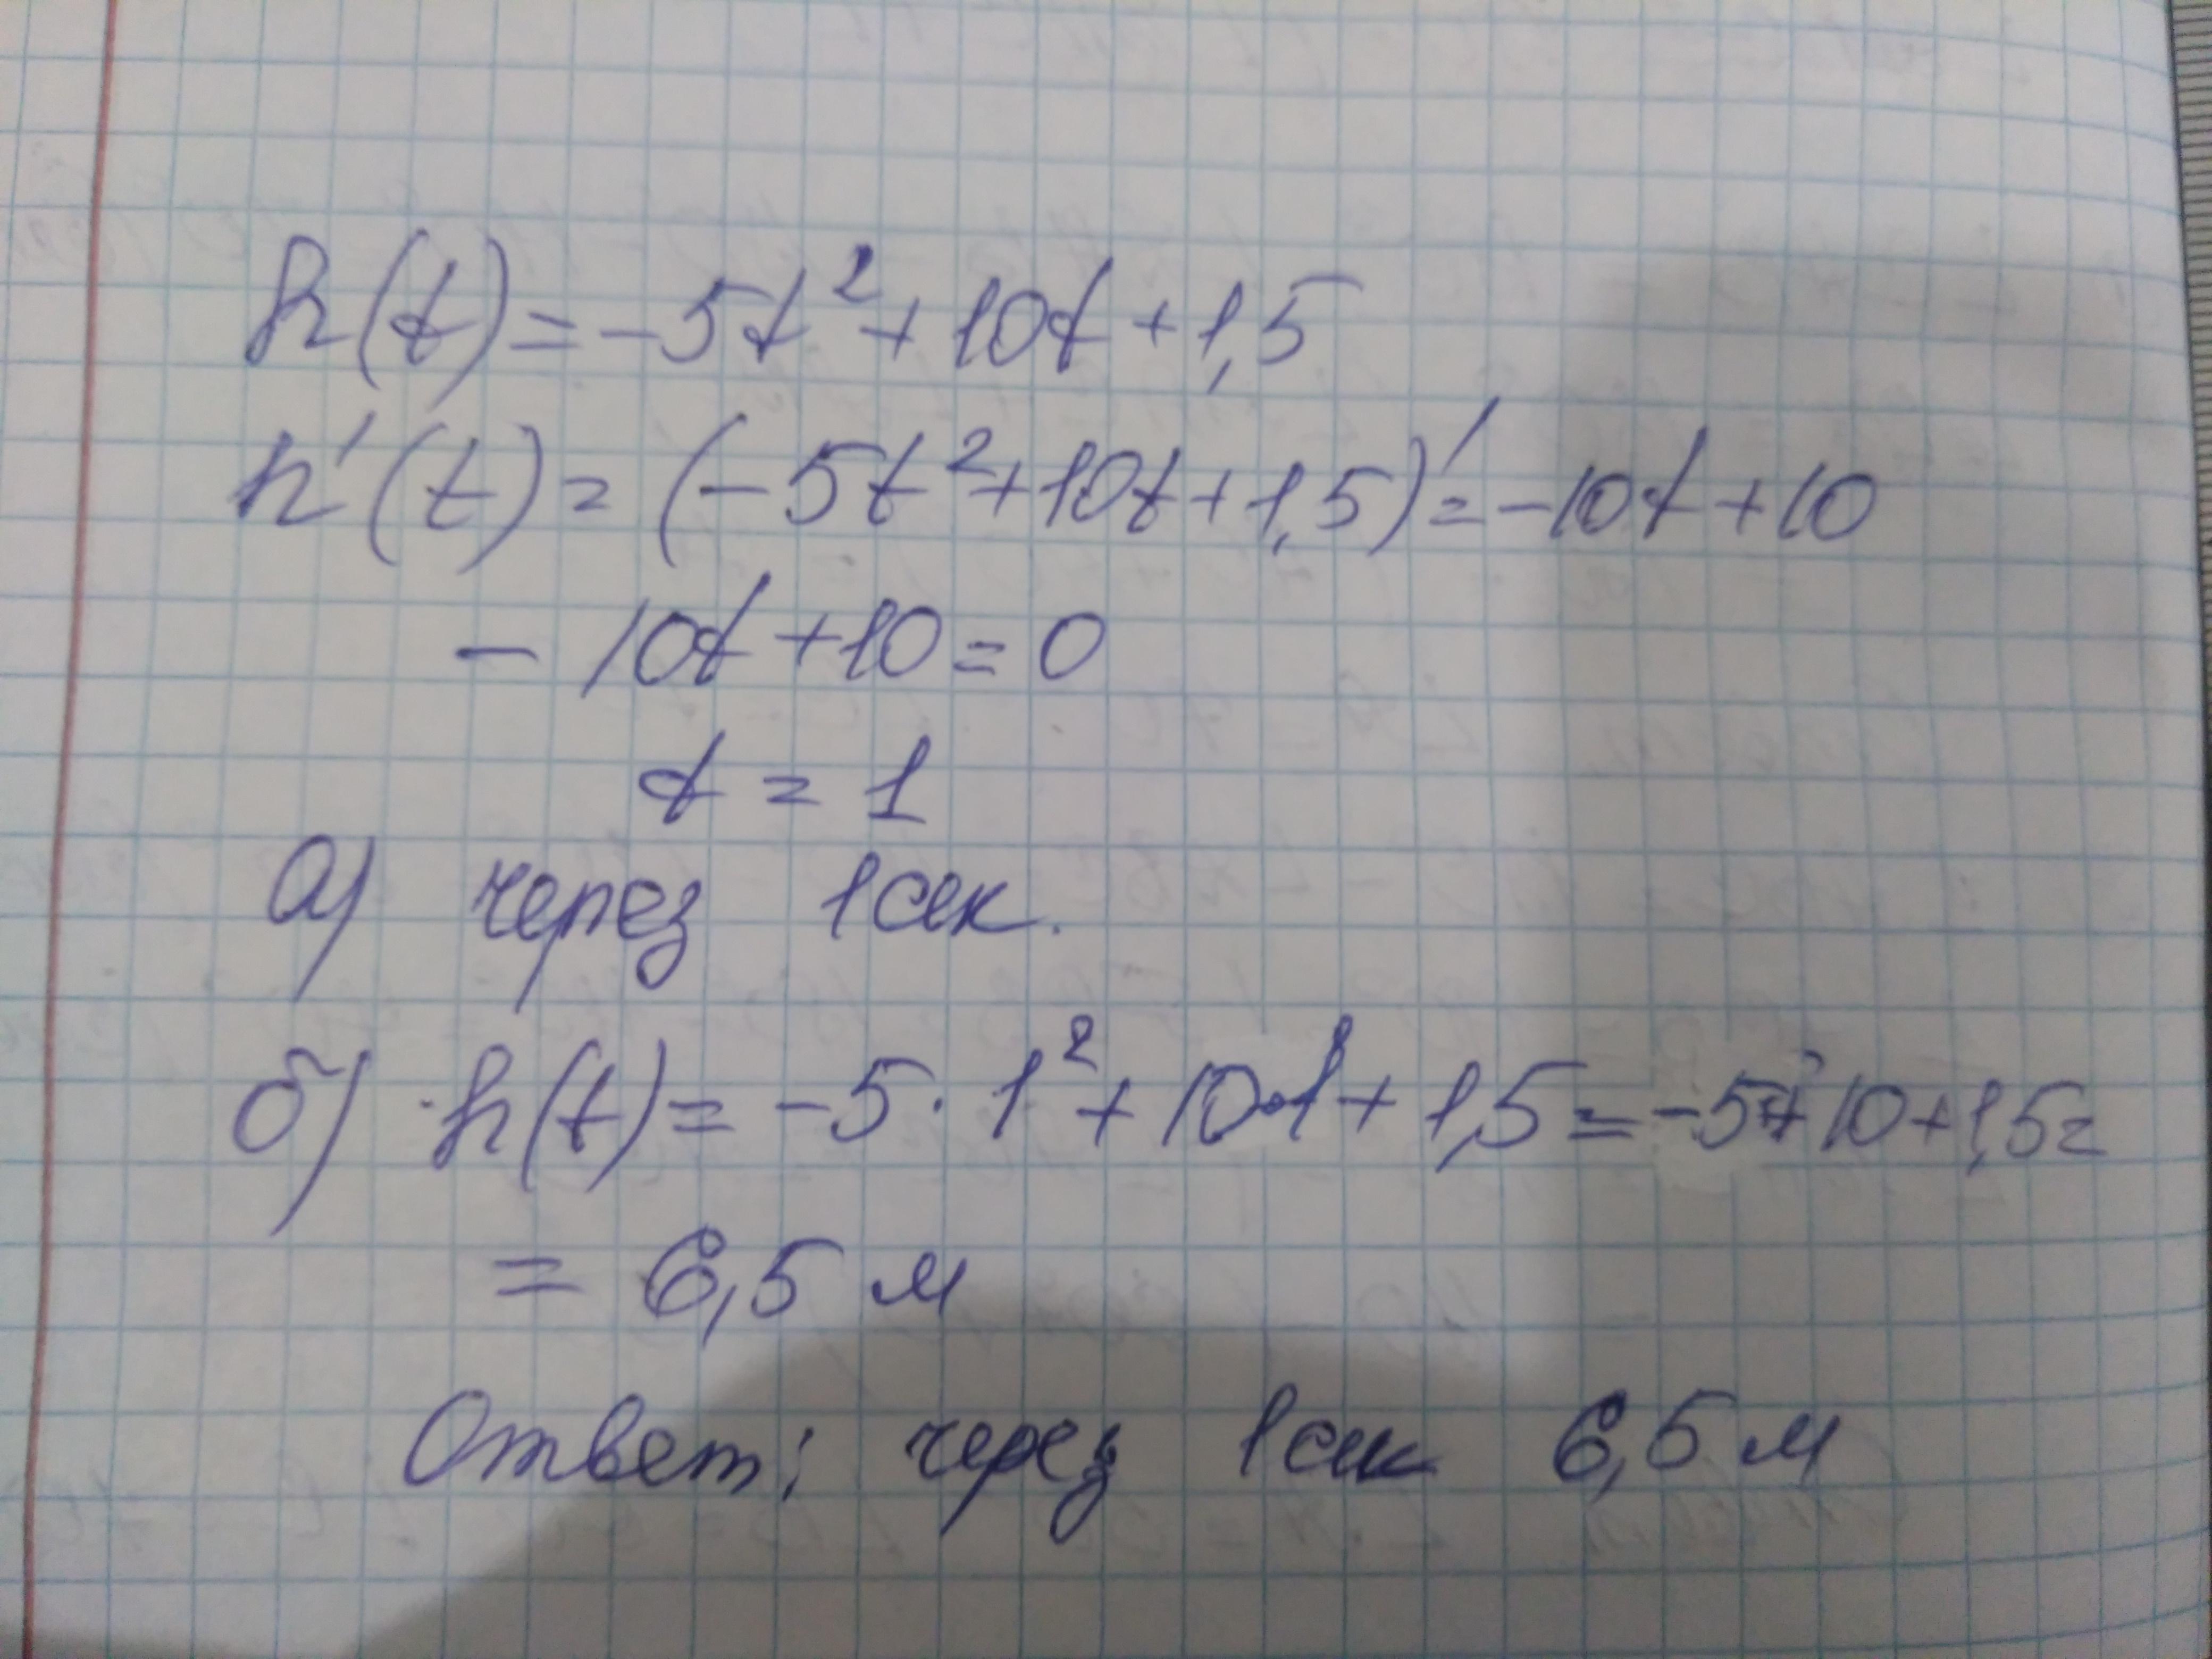 h(t)=-5t²+10t+1,5
h'(t)=(-5t²+10t+1,5)'=-10t+10
-10t+10=0
t=1
а) через 1сек.
б) h(t)=-5·1²+10·1+1,5=-5+10+1,5=
=6,5 м
Ответ: через 1сек 6,5 м